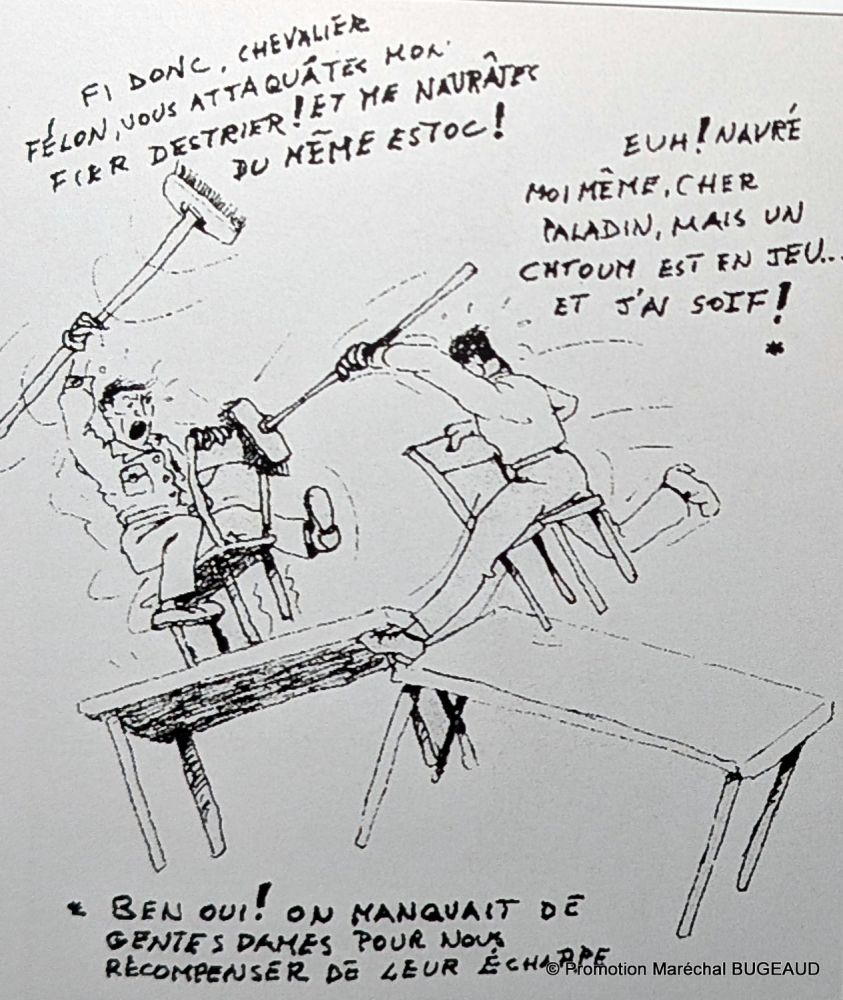 FI DONC, CHEVALIER
FÉLON, VOUS ATTAQUÂTES MON
FIER DESTRIER! ET ME NAVRÂTES
DU MÊME ESTOC!
EUH! NAVRÉ
MOI MÊME, CHER
PALADIN, MAIS UN
CHTOUM EST EN JEU...
ET J'AI SOIF!
*
* BEN OUI! ON MANQUAIT DE
GENTES DAMES POUR NOUS
RÉCOMPENSER DE LEUR ÉCHARPE
© Promotion Maréchal BUGEAUD